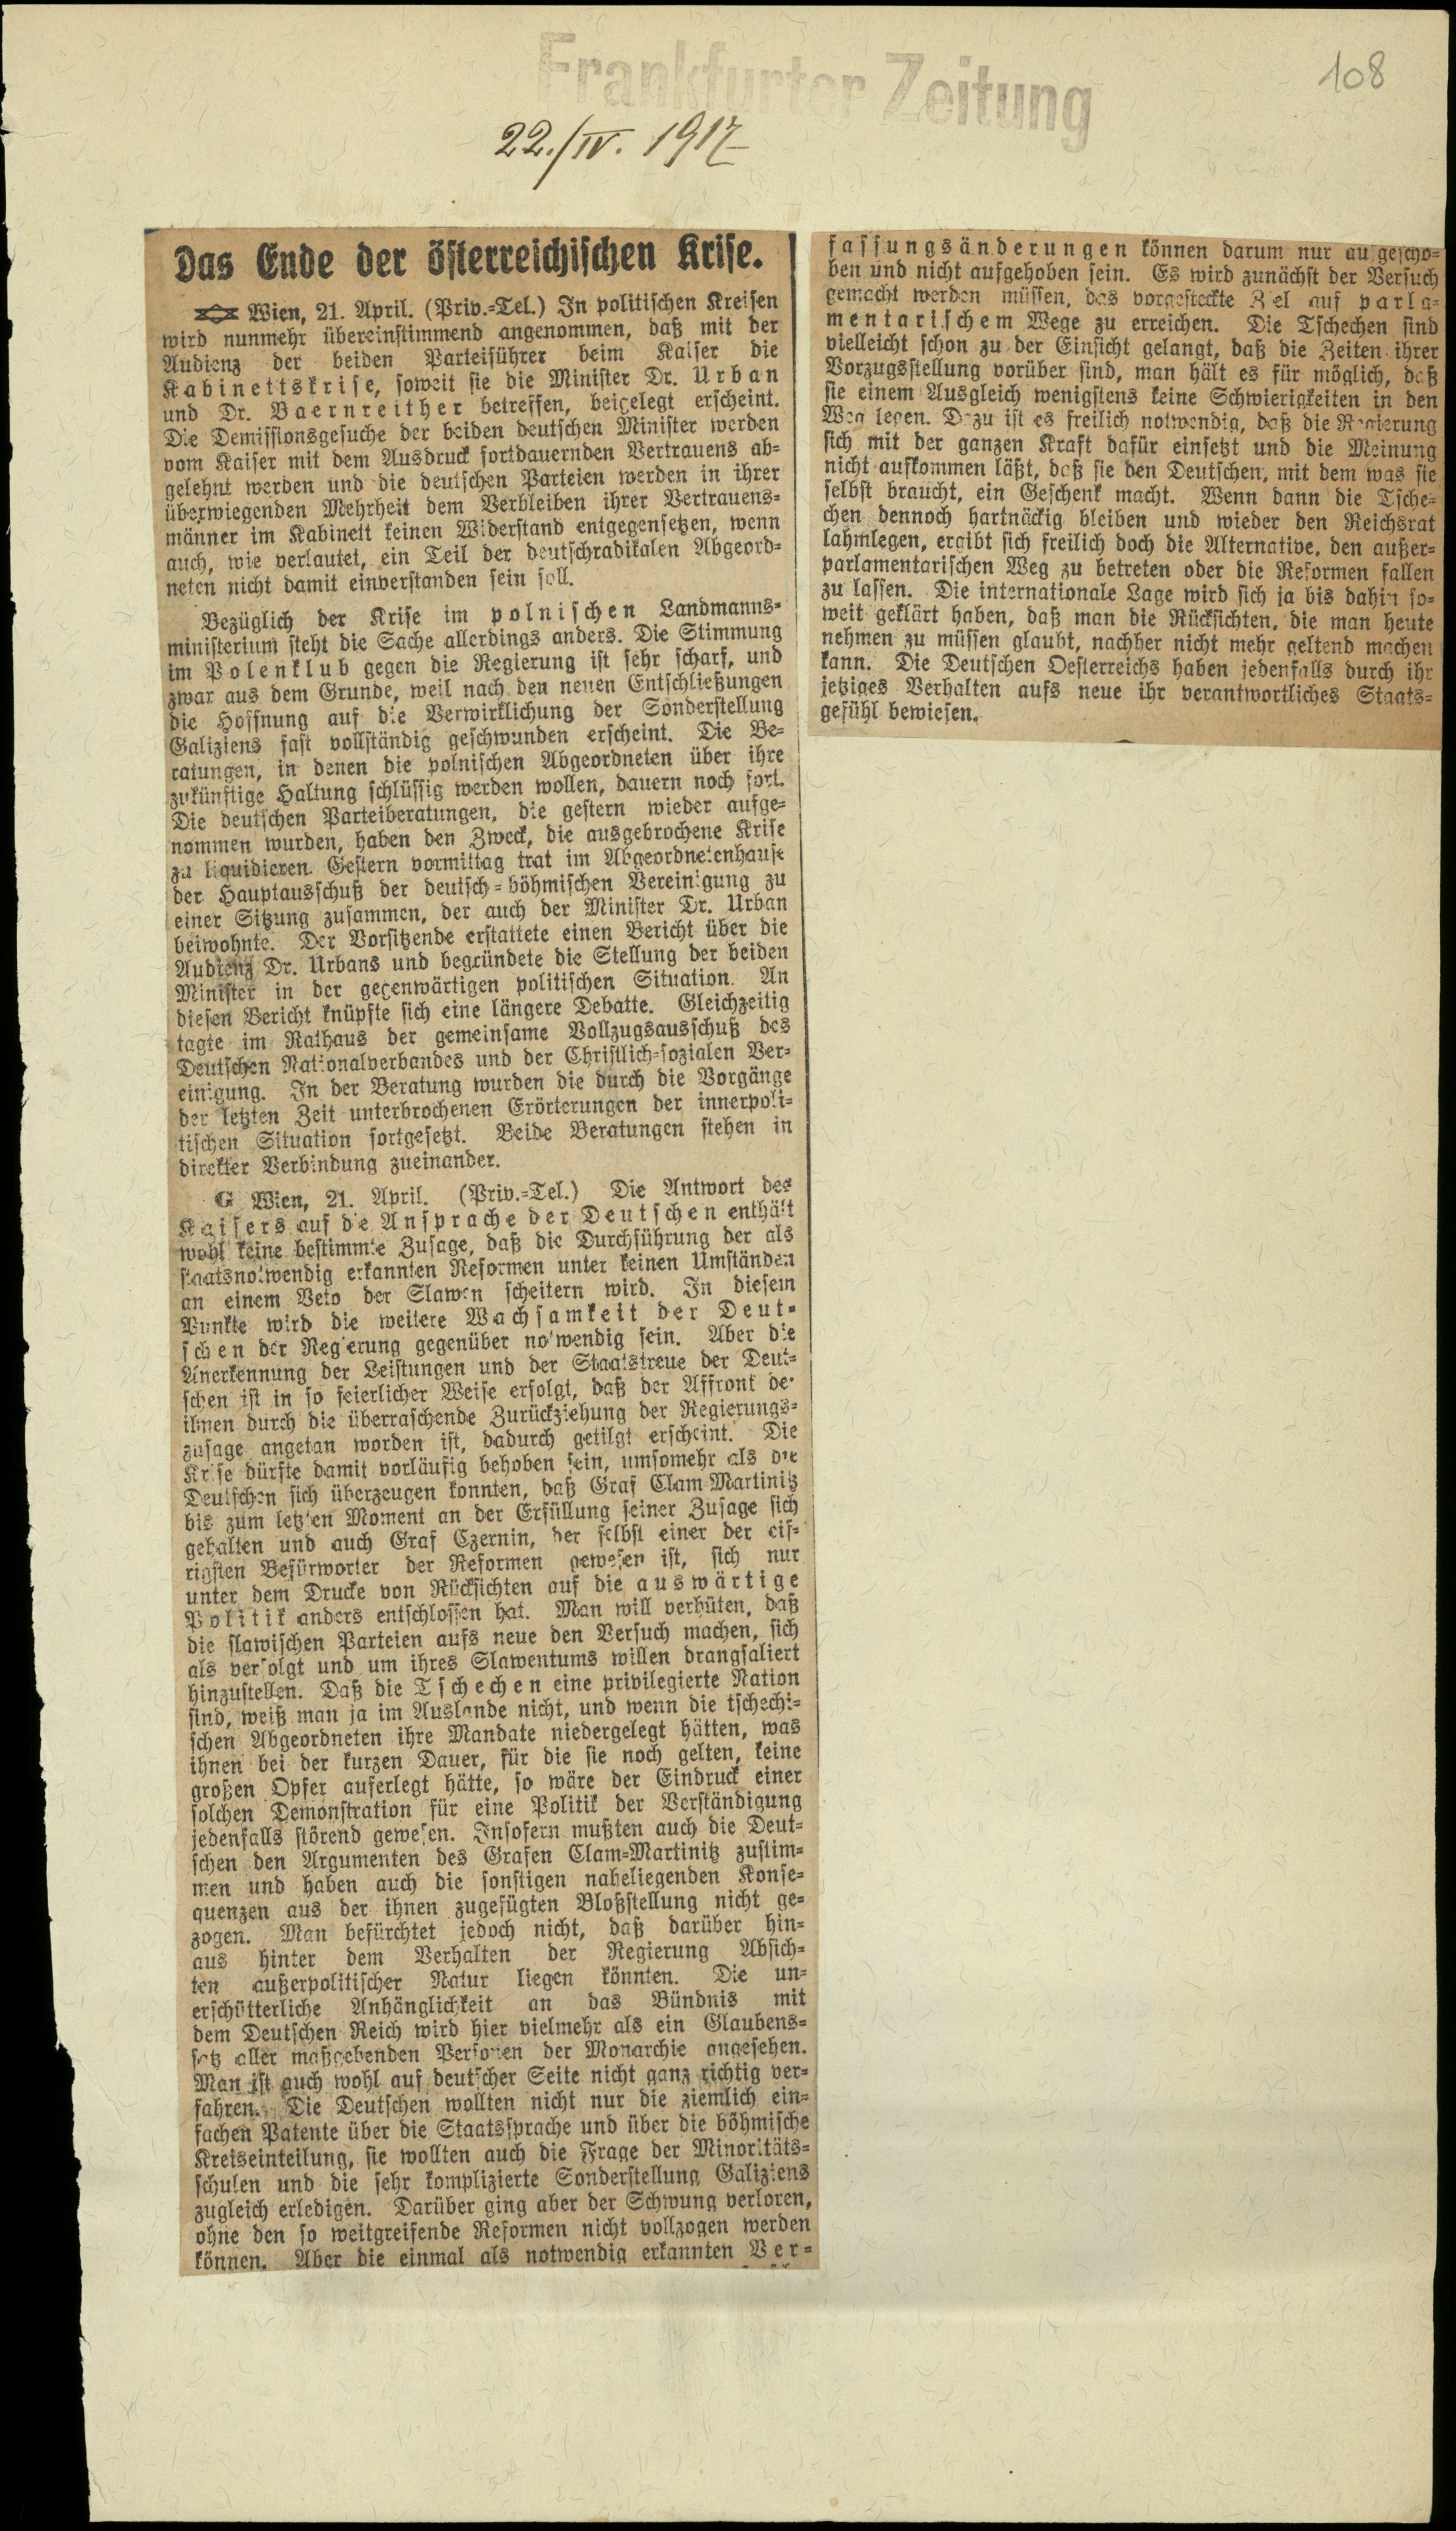 Frankfurter Zeitung
108
22./IV. 1917
Das Ende der österreichischen Krise.
Wien, 21. April. (Priv.-Tel.) In politischen Kreisen
wird nunmehr übereinstimmend angenommen, daß mit der
Audienz der beiden Parteiführer beim Kaiser die
Kabinettskrise, soweit sie die Minister Dr. Urban
und Dr. Baernreither betreffen, beigelegt erscheint.
Die Demissionsgesuche der beiden deutschen Minister werden
vom Kaiser mit dem Ausdruck fortdauernden Vertrauens ab-
gelehnt werden und die deutschen Parteien werden in ihrer
überwiegenden Mehrheit dem Verbleiben ihrer Vertrauens-
männer im Kabinett keinen Widerstand entgegensetzen, wenn
auch, wie verlautet, ein Teil der deutschradikalen Abgeord-
neten nicht damit einverstanden sein soll.
Bezüglich der Krise im polnischen Landmanns-
ministerium steht die Sache allerdings anders. Die Stimmung
im Polenklub gegen die Regierung ist sehr scharf, und
zwar aus dem Grunde, weil nach den neuen Entschließungen
die Hoffnung auf die Verwirklichung der Sonderstellung
Galiziens fast vollständig geschwunden erscheint. Die Be-
ratungen, in denen die polnischen Abgeordneten über ihre
zukünftige Haltung schlüssig werden wollen, dauern noch fort.
Die deutschen Parteiberatungen, die gestern wieder aufge-
nommen wurden, haben den Zweck, die ausgebrochene Krise
zu liquidieren. Gestern vormittag trat im Abgeordnetenhause
der Hauptausschuß der deutsch-böhmischen Vereinigung zu
einer Sitzung zusammen, der auch der Minister Dr. Urban
beiwohnte. Der Vorsitzende erstattete einen Bericht über die
Audienz Dr. Urbans und begründete die Stellung der beiden
Minister in der gegenwärtigen politischen Situation. An
diesen Bericht knüpfte sich eine längere Debatte. Gleichzeitig
tagte im Rathaus der gemeinsame Vollzugsausschuß des
Deutschen Nationalverbandes und der Christlich-sozialen Ver-
einigung. In der Beratung wurden die durch die Vorgänge
der letzten Zeit unterbrochenen Erörterungen der innerpoli-
tischen Situation fortgesetzt. Beide Beratungen stehen in
direkter Verbindung zueinander.
G Wien, 21. April. (Priv.-Tel.) Die Antwort des
Kaisers auf die Ansprache der Deutschen enthält
wohl keine bestimmte Zusage, daß die Durchführung der als
staatsnotwendig erkannten Reformen unter keinen Umständen
an einem Veto der Slawen scheitern wird. In diesem
Punkte wird die weitere Wachsamkeit der Deut-
schen der Regierung gegenüber notwendig sein. Aber die
Anerkennung der Leistungen und der Staatstreue der Deut-
schen ist in so feierlicher Weise erfolgt, daß der Affront der
ihnen durch die überraschende Zurückziehung der Regierungs-
zusage angetan worden ist, dadurch getilgt erscheint. Die
Krise dürfte damit vorläufig behoben sein, umsomehr als die
Deutschen sich überzeugen konnten, daß Graf Clam-Martinitz
bis zum letzten Moment an der Erfüllung seiner Zusage sich
gehalten und auch Graf Czernin, der selbst einer der eif-
rigsten Befürworter der Reformen gewesen ist, sich nur
unter dem Drucke von Rücksichten auf die auswärtige
Politik anders entschlossen hat. Man will verhüten, daß
die slawischen Parteien aufs neue den Versuch machen, sich
als verfolgt und um ihres Slawentums willen drangsaliert
hinzustellen. Daß die Tschechen eine privilegierte Nation
sind, weiß man ja im Auslande nicht, und wenn die tschechi-
schen Abgeordneten ihre Mandate niedergelegt hätten, was
ihnen bei der kurzen Dauer, für die sie noch gelten, keine
großen Opfer auferlegt hätte, so wäre der Eindruck einer
solchen Demonstration für eine Politik der Verständigung
jedenfalls störend gewesen. Insofern mußten auch die Deut-
schen den Argumenten des Grafen Clam-Martinitz zustim-
men und haben auch die sonstigen naheliegenden Konse-
quenzen aus der ihnen zugefügten Bloßstellung nicht ge-
zogen. Man befürchtet jedoch nicht, daß darüber hin-
aus hinter dem Verhalten der Regierung Absich-
ten außerpolitischer Natur liegen könnten. Die un-
erschütterliche Anhänglichkeit an das Bündnis mit
dem Deutschen Reich wird hier vielmehr als ein Glaubens-
satz aller maßgebenden Personen der Monarchie angesehen.
Man ist auch wohl auf deutscher Seite nicht ganz richtig ver-
fahren. Die Deutschen wollten nicht nur die ziemlich ein-
fachen Patente über die Staatssprache und über die böhmische
Kreiseinteilung, sie wollten auch die Frage der Minoritäts-
schulen und die sehr komplizierte Sonderstellung Galiziens
zugleich erledigen. Darüber ging aber der Schwung verloren,
ohne den so weitgreifende Reformen nicht vollzogen werden
können. Aber die einmal als notwendig erkannten Ver-
fassungsänderungen können darum nur aufgescho-
ben und nicht aufgehoben sein. Es wird zunächst der Versuch
gemacht werden müssen, das vorgesteckte Ziel auf parla-
mentarischem Wege zu erreichen. Die Tschechen sind
vielleicht schon zu der Einsicht gelangt, daß die Zeiten ihrer
Vorzugsstellung vorüber sind, man hält es für möglich, daß
sie einem Ausgleich wenigstens keine Schwierigkeiten in den
Weg legen. Dazu ist es freilich notwendig, daß die Regierung
sich mit der ganzen Kraft dafür einsetzt und die Meinung
nicht aufkommen läßt, daß sie den Deutschen, mit dem was sie
selbst braucht, ein Geschenk macht. Wenn dann die Tsche-
chen dennoch hartnäckig bleiben und wieder den Reichsrat
lahmlegen, ergibt sich freilich doch die Alternative, den außer-
parlamentarischen Weg zu betreten oder die Reformen fallen
zu lassen. Die internationale Lage wird sich ja bis dahin so-
weit geklärt haben, daß man die Rücksichten, die man heute
nehmen zu müssen glaubt, nachher nicht mehr geltend machen
kann. Die Deutschen Oesterreichs haben jedenfalls durch ihr
jetziges Verhalten aufs neue ihr verantwortliches Staats-
gefühl bewiesen.